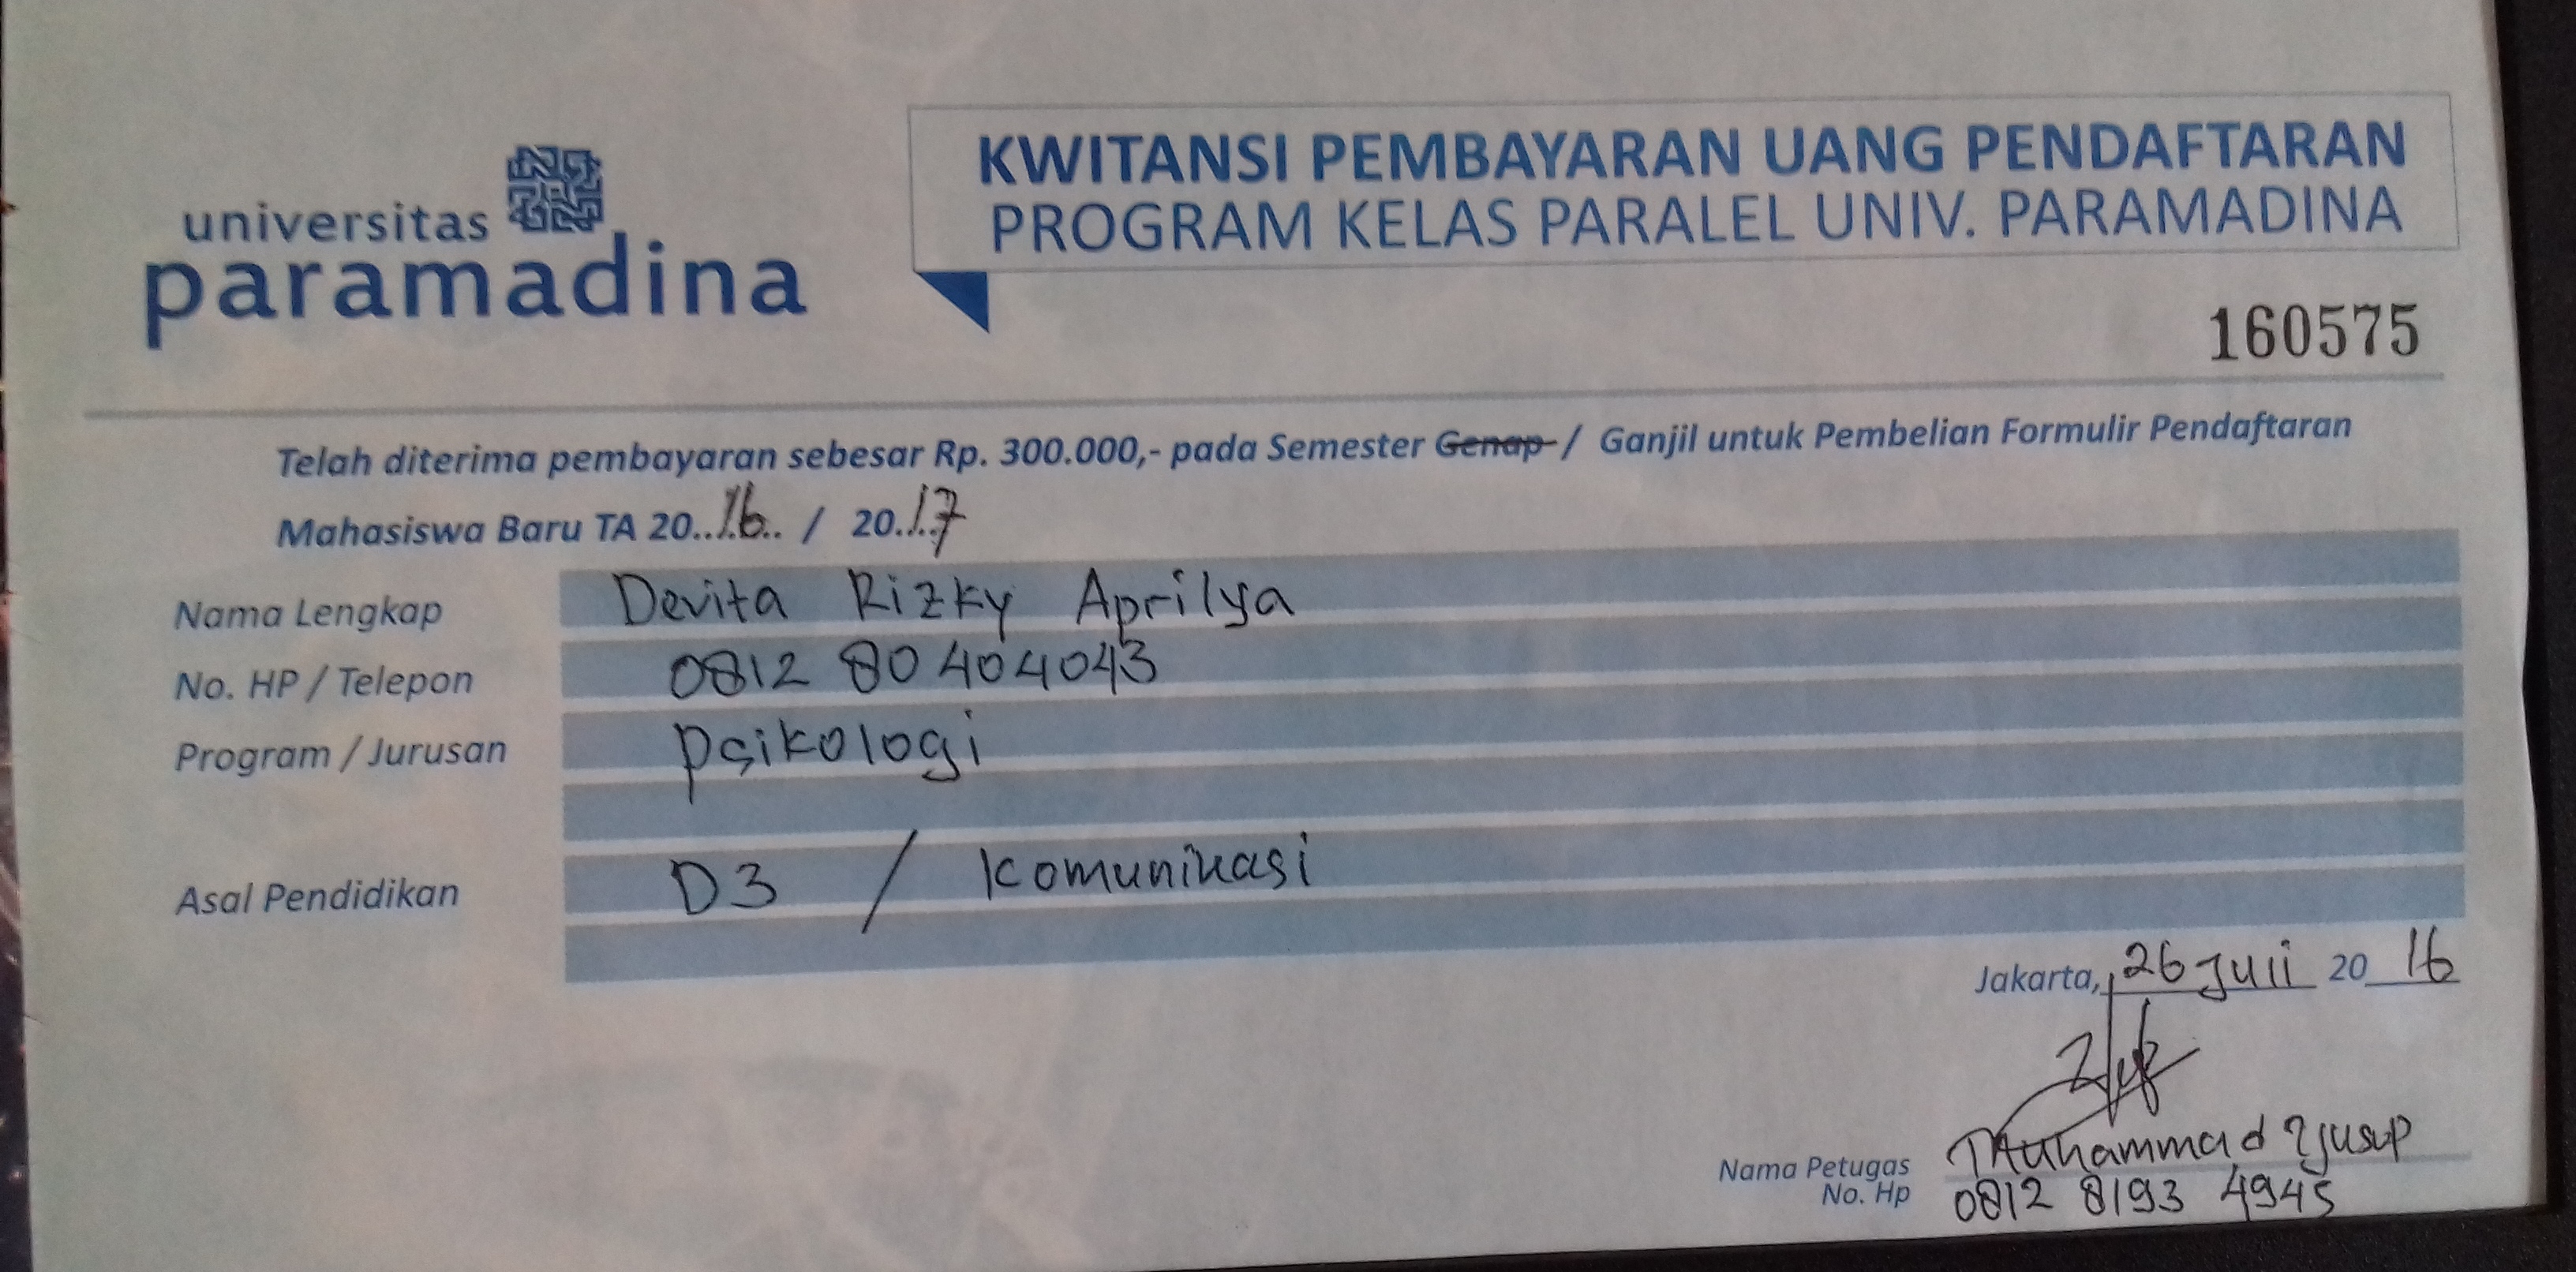 universitas
paramadina
KWITANSI PEMBAYARAN UANG PENDAFTARAN
PROGRAM KELAS PARALEL UNIV. PARAMADINA
160575
Telah diterima pembayaran sebesar Rp. 300.000,- pada Semester Genap / Ganjil untuk Pembelian Formulir Pendaftaran
Mahasiswa Baru TA 20..16.. / 20.17
Nama Lengkap Devita Rizky Aprilya
No. HP / Telepon 0812 80 404043
Program / Jurusan Psikologi
Asal Pendidikan D3 / Komunikasi
Jakarta, 26 Juli 20 16
Nama Petugas Muhammad Yusup
No. Hp 0812 8193 4945